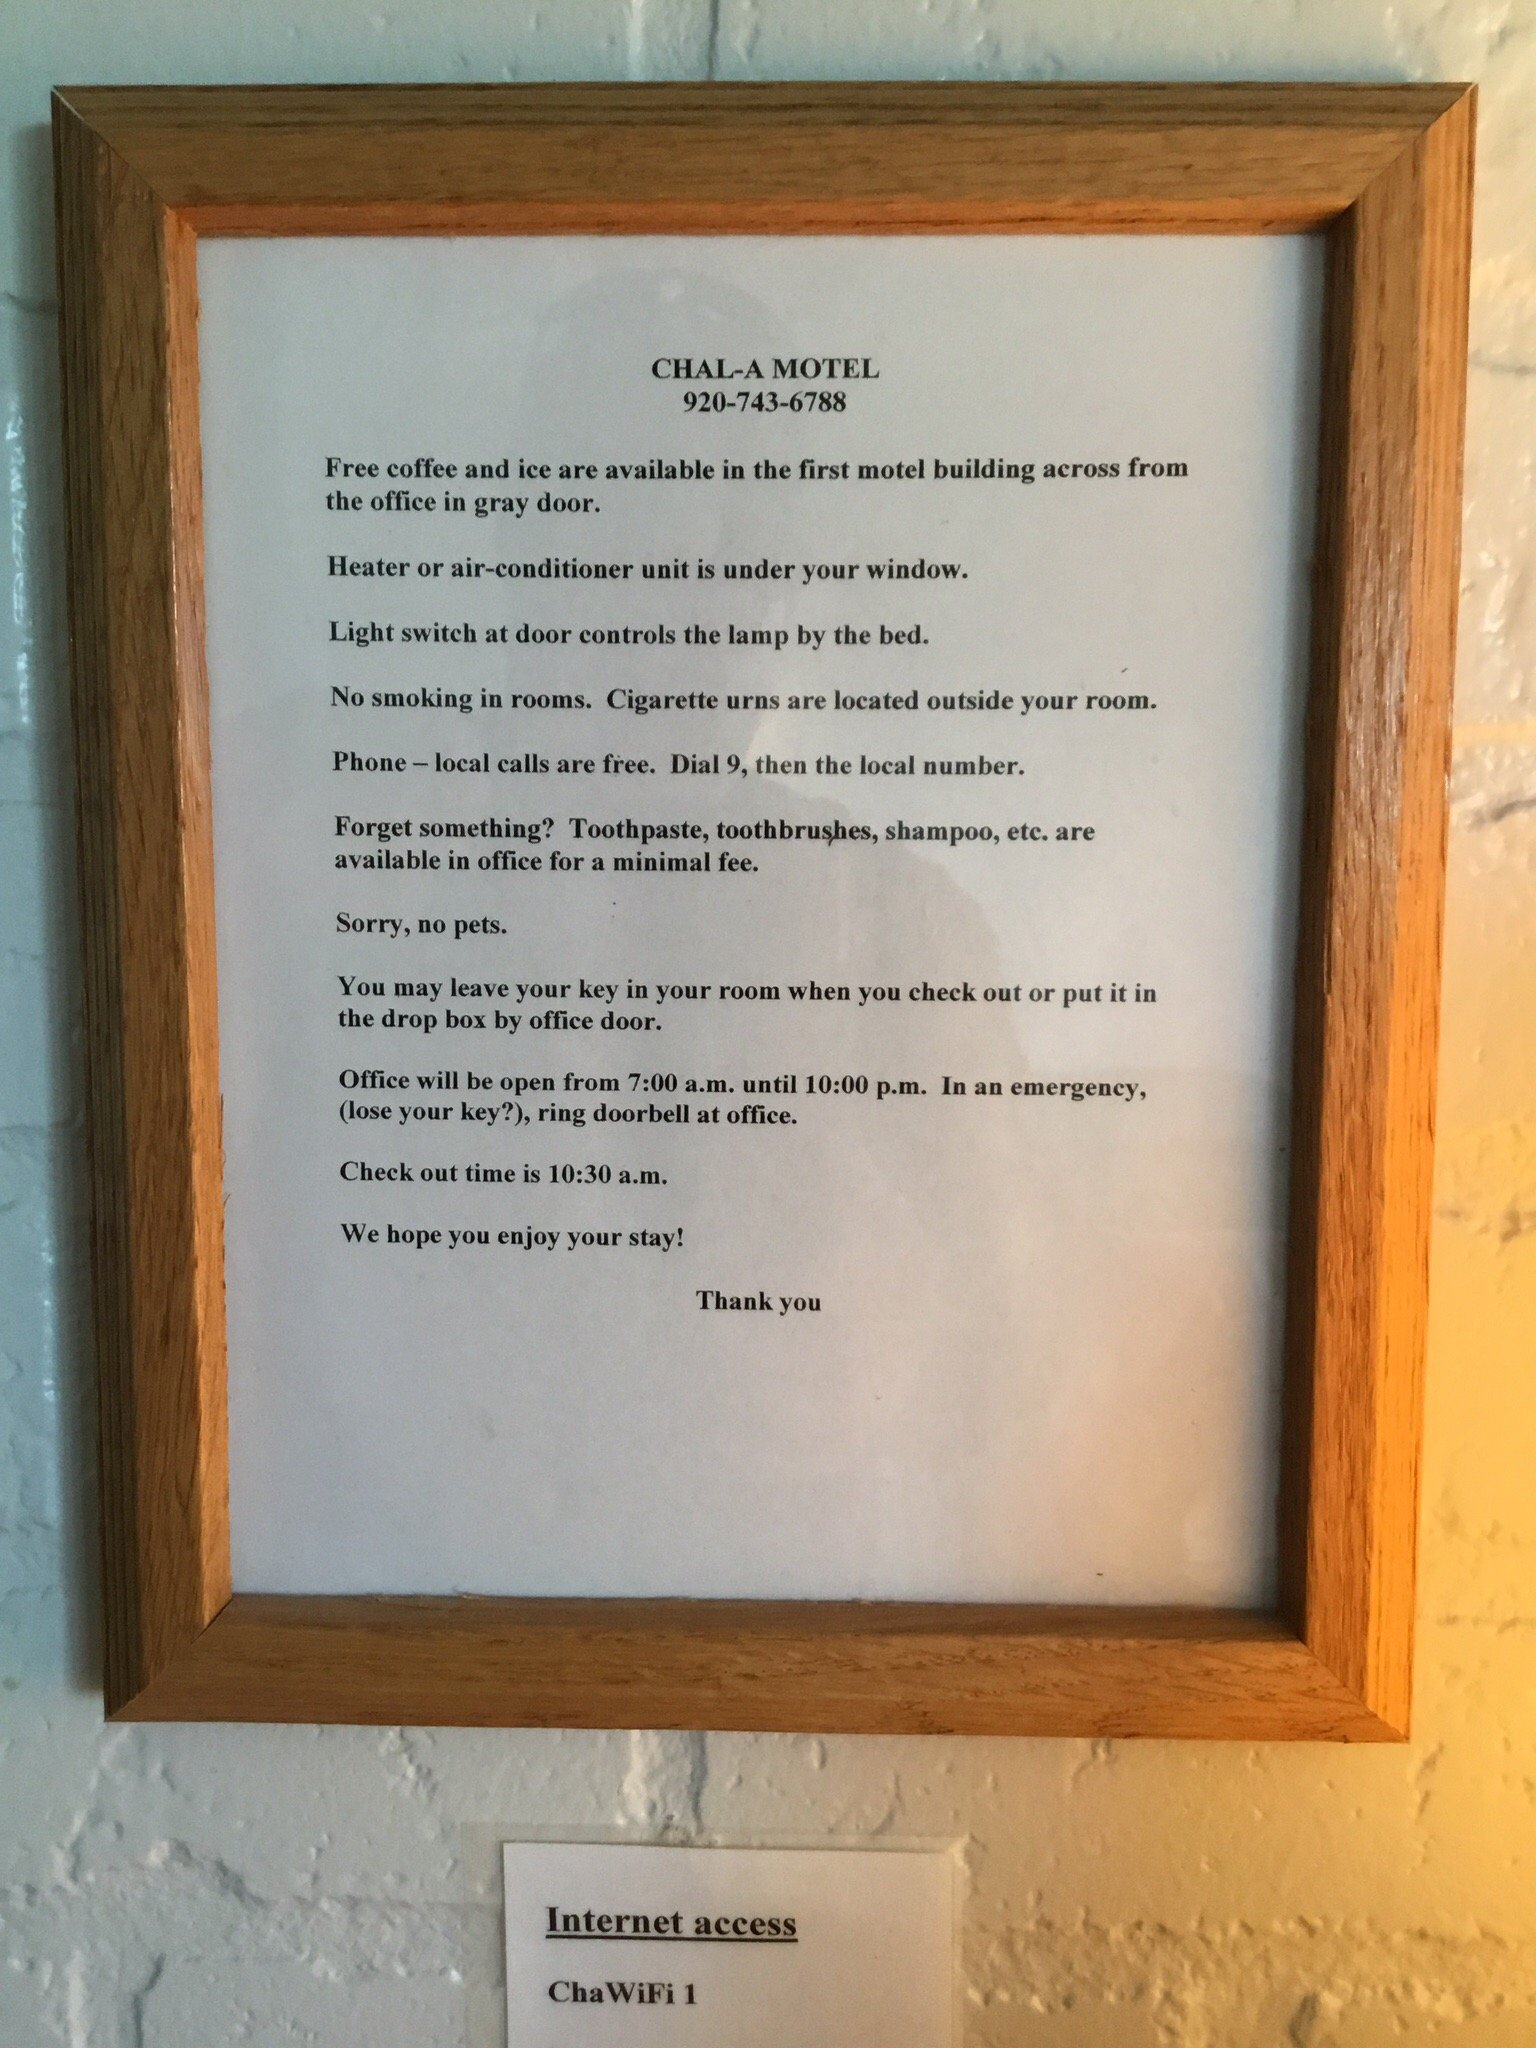 CHAL-A MOTEL
920-743-6788
Free coffee and ice are available in the first motel building across from
the office in gray door.
Heater or air-conditioner unit is under your window.
Light switch at door controls the lamp by the bed.
No smoking in rooms.  Cigarette urns are located outside your room.
Phone – local calls are free.  Dial 9, then the local number.
Forget something?  Toothpaste, toothbrushes, shampoo, etc. are
available in office for a minimal fee.
Sorry, no pets.
You may leave your key in your room when you check out or put it in
the drop box by office door.
Office will be open from 7:00 a.m. until 10:00 p.m.  In an emergency,
(lose your key?), ring doorbell at office.
Check out time is 10:30 a.m.
We hope you enjoy your stay!
Thank you
Internet access
ChaWiFi 1